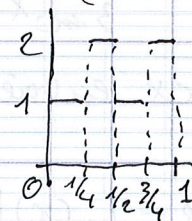 2
1
0 1/4 1/2 3/4 1